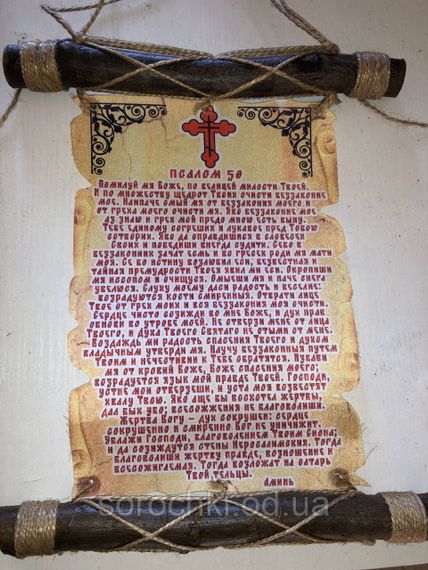 ПСАЛОМ 50
Помилуй мя Боже, по велицей милости Твоей,
и по множеству щедрот Твоих очисти беззаконие
мое. Наипаче омый мя от беззакония моего и
от греха моего очисти мя. Яко беззаконие мое
аз знаю и грех мой предо мною есть выну.
Тебе единому согреших и лукавое пред Тобою
сотворих. Яко да оправдишися в словесех
Своих и победиши внегда судити. Себо в
беззакониих зачат есмь и во гресех роди мя мати
моя. Се бо истину возлюбил еси, безвестная и
тайная премудрости Твоея явил ми еси. Окропиши
мя иссопом и очищуся. Омыеши мя и паче снега
убелюся. Слуху моему даси радость и веселие,
возрадуются кости смиренныя. Отврати лице
Твое от грех моих и вся беззакония моя очисти.
Сердце чисто созижди во мне Боже, и дух прав
обнови во утробе моей. Не отверзи мене от лица
Твоего, и Духа Твоего Святаго не отыми от мене.
Воздаждь ми радость спасения Твоего и духом
владычным утверди мя. Научу беззаконныя путем
Твоим и нечестивии к Тебе обратятся. Избави
мя от кровий Боже, Боже спасения моего;
возрадуется язык мой правде Твоей. Господи,
устне мои отверзеши, и уста моя возвестят
хвалу Твою. Яко аще бы восхотел жертвы,
дал бых убо; всесожжения не благоволиши.
Жертва Богу – дух сокрушен; сердце
сокрушенно и смиренно Бог не уничижит.
Ублажи Господи, благоволением Твоим Сиона;
и да созиждутся стены Иерусалимския. Тогда
благоволиши жертву правде, возношение и
всесожигаемая. Тогда возложат на олтарь
Твой тельцы.
Аминь
sorochki.od.ua